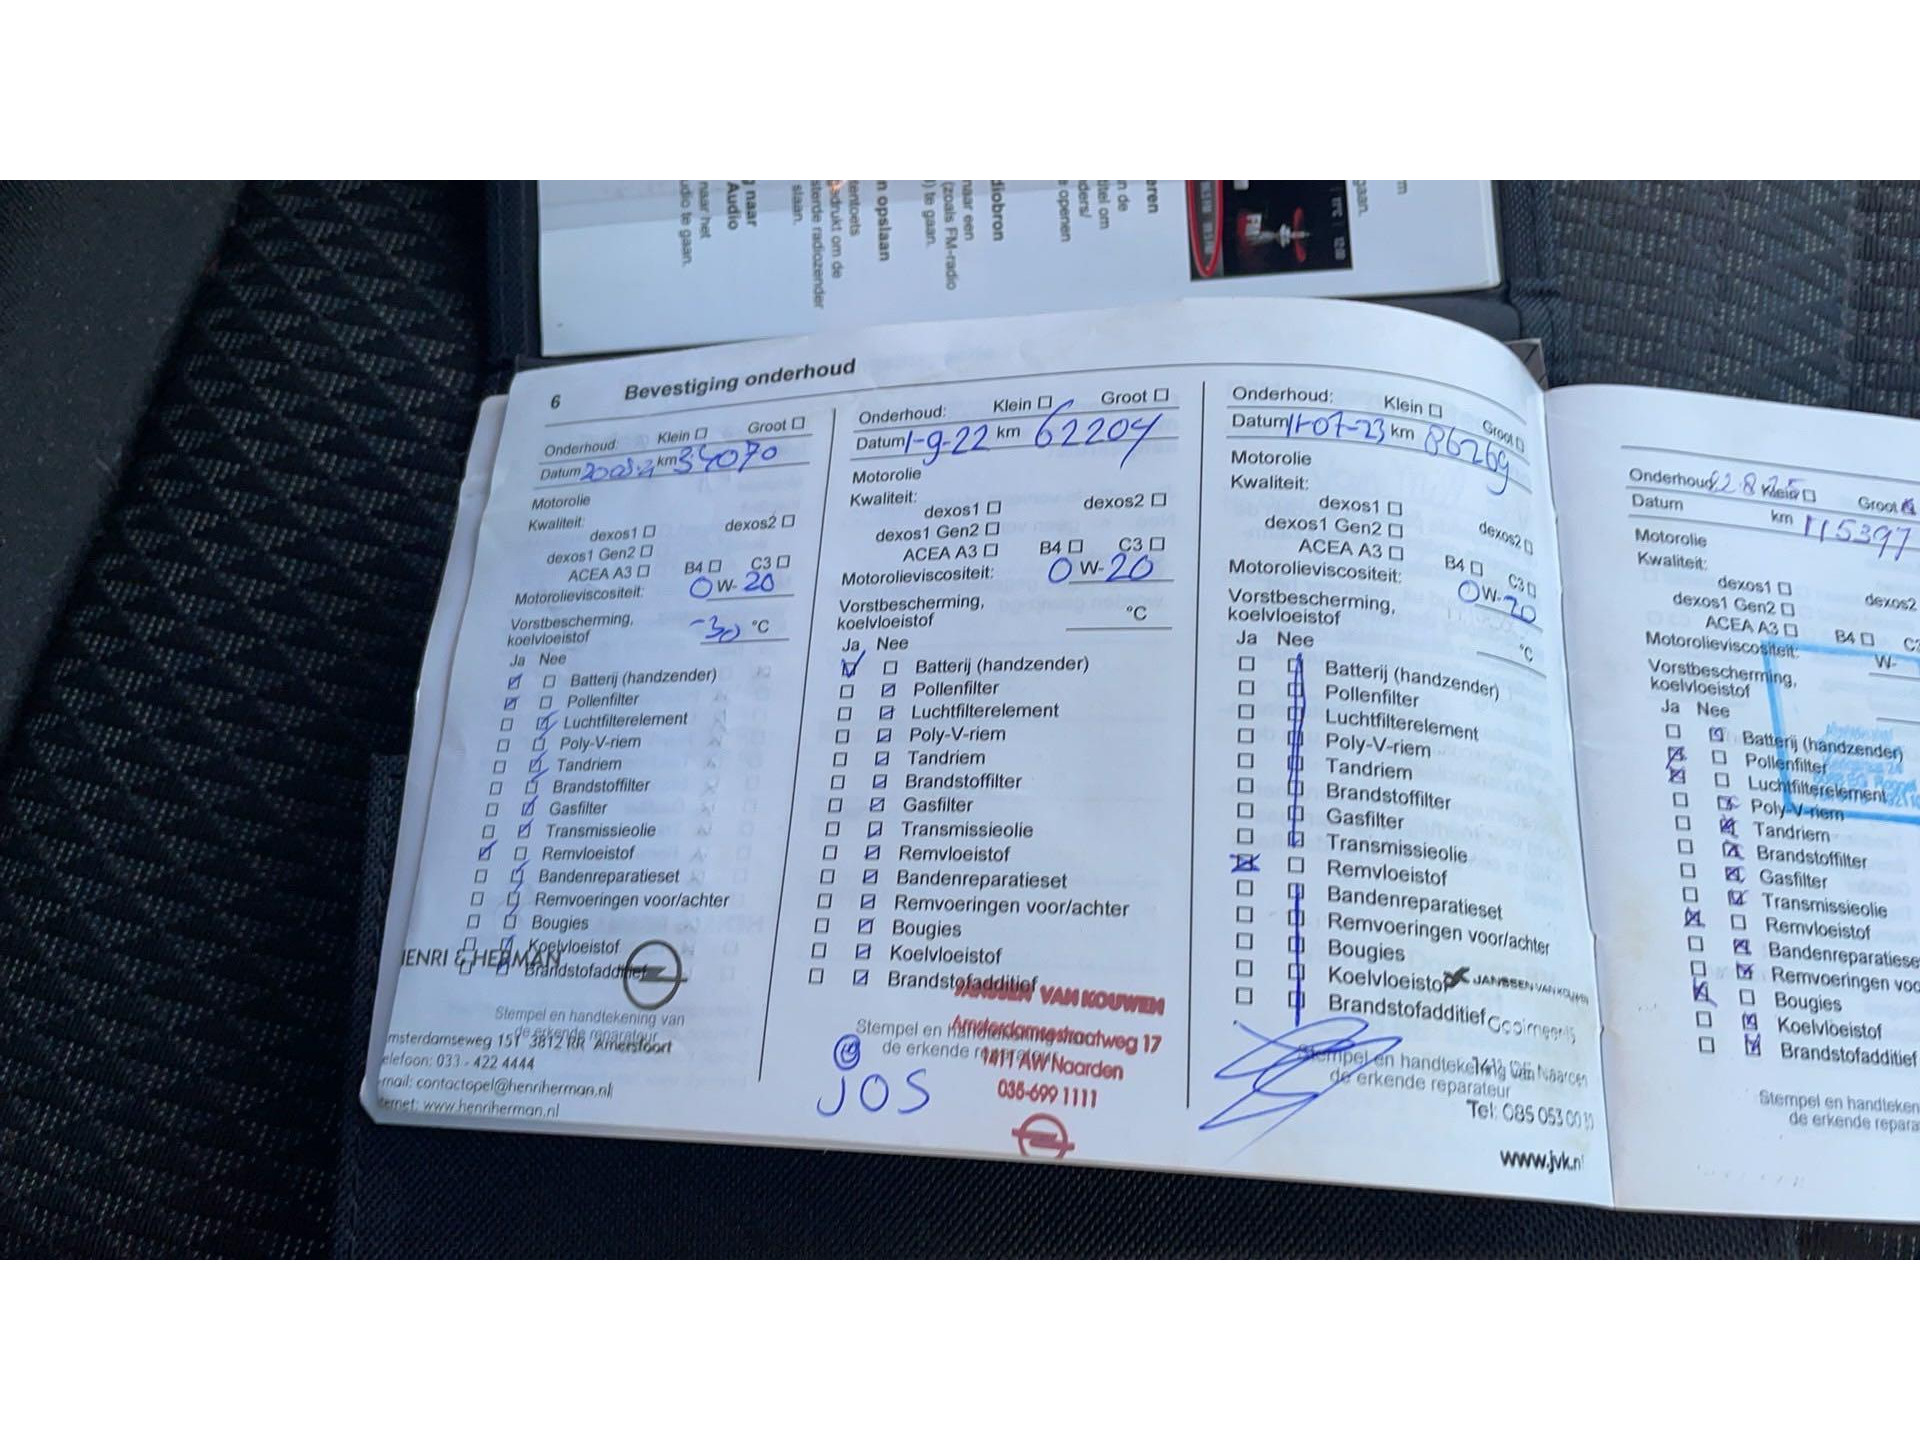 m
gaan.
eren
n de
diobron
naar een
(zoals FM-radio
) te gaan.
n opslaan
slaan.
naar
Audio
naar het
te gaan.
6 Bevestiging onderhoud
Onderhoud: Klein Groot
Datum km 34070
Motorolie
Kwaliteit:
dexos1 dexos2
dexos1 Gen2
ACEA A3 B4 C3
Motorolieviscositeit: 0 W- 20
Vorstbescherming,
koelvloeistof -30 °C
Ja Nee
Batterij (handzender)
Pollenfilter
Luchtfilterelement
Poly-V-riem
Tandriem
Brandstoffilter
Gasfilter
Transmissieolie
Remvloeistof
Bandenreparatieset
Remvoeringen voor/achter
Bougies
Koelvloeistof
Brandstofadditief
HENRI & HERMAN
Stempel en handtekening van
de erkende reparateur
msterdamseweg 151 3812 RR Amersfoort
elefoon: 033 - 422 4444
-mail: contactopel@henriherman.nl
ternet: www.henriherman.nl
Onderhoud: Klein Groot
Datum 1-9-22 km 62204
Motorolie
Kwaliteit:
dexos1 dexos2
dexos1 Gen2
ACEA A3 B4 C3
Motorolieviscositeit: 0 W- 20
Vorstbescherming,
koelvloeistof °C
Ja Nee
Batterij (handzender)
Pollenfilter
Luchtfilterelement
Poly-V-riem
Tandriem
Brandstoffilter
Gasfilter
Transmissieolie
Remvloeistof
Bandenreparatieset
Remvoeringen voor/achter
Bougies
Koelvloeistof
Brandstofadditief
JANSSEN VAN KOUWEN
Stempel en handtekening van
Amsterdamsestraatweg 17
de erkende reparateur
1411 AW Naarden
JOS
035-699 1111
Onderhoud: Klein Groot
Datum 11-07-23 km 86269
Motorolie
Kwaliteit:
dexos1
dexos1 Gen2 dexos2
ACEA A3 B4 C3
Motorolieviscositeit: 0 W- 20
Vorstbescherming,
koelvloeistof °C
Ja Nee
Batterij (handzender)
Pollenfilter
Luchtfilterelement
Poly-V-riem
Tandriem
Brandstoffilter
Gasfilter
Transmissieolie
Remvloeistof
Bandenreparatieset
Remvoeringen voor/achter
Bougies
Koelvloeistof
JANSSEN VAN KOUWEN
Brandstofadditief
Stempel en handtekening van
de erkende reparateur
www.jvk.nl
Onderhoud Klein Groot
Datum km 115397
Motorolie
Kwaliteit:
dexos1 dexos2
dexos1 Gen2
ACEA A3 B4 C3
Motorolieviscositeit: W-
Vorstbescherming,
koelvloeistof
Ja Nee
Batterij (handzender)
Pollenfilter
Luchtfilterelement
Poly-V-riem
Tandriem
Brandstoffilter
Gasfilter
Transmissieolie
Remvloeistof
Bandenreparatiese
Remvoeringen voo
Bougies
Koelvloeistof
Brandstofadditief
Stempel en handteken
de erkende repara